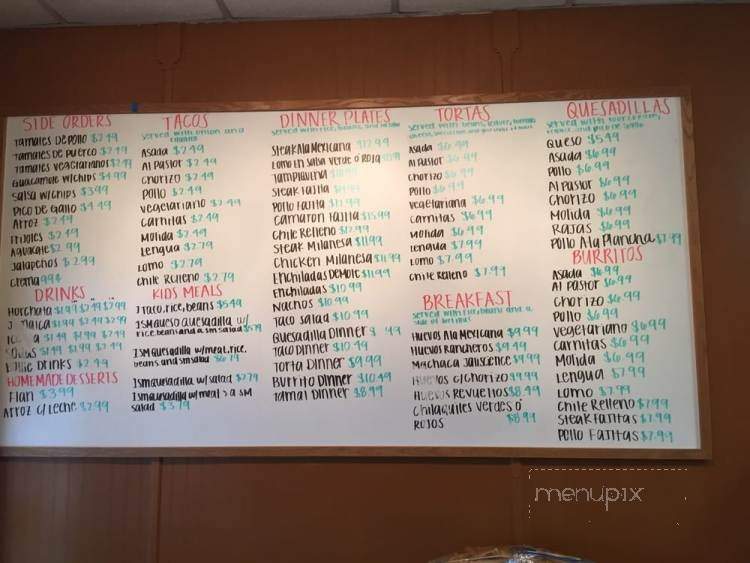 SIDE ORDERS
Tamales De Pollo $2.49
Tamales de Puerco $2.49
Tamales vegetarianos $2.49
Guacamole w/chips $4.99
Salsa w/chips $3.99
Pico De Gallo $4.49
Arroz $2.49
Frijoles $2.49
Aguacate $2.99
Jalapeños $2.99
Crema 99¢
DRINKS
Horchata $1.99 $2.49 $2.99
Jamaica $1.99 $2.49 $2.99
$1.49 $1.99 $2.49
$1.49 $1.99 $2.49
Drinks $2.49
HOMEMADE DESSERTS
Flan $3.99
Arroz c/Leche $2.99
TACOS
served with onion and
cilantro
Asada $2.49
Al Pastor $2.49
Chorizo $2.49
Pollo $2.49
vegetariano $2.49
Carnitas $2.49
Molida $2.49
Lengua $2.79
Lomo $2.79
Chile Relleno $2.79
KIDS MEALS
1 Taco, rice, beans $5.49
1 sm queso quesadilla w/
rice, beans and a sm salad
1 sm quesadilla w/meat, rice,
beans and sm salad $6.79
1 sm quesadilla w/ salad $2.79
1 sm quesadilla w/ meat & a sm
salad $3.79
DINNER PLATES
served with rice, beans, and
Steak Ala Mexicana $12.99
Lomo En Salsa Verde o Roja
Tampiqueña
Steak Fajita
Pollo Fajita
Camaron Fajita $15.99
Chile Relleno $12.99
Steak Milanesa $11.99
Chicken Milanesa $11.99
Enchiladas De Mole $11.99
Enchiladas $10.99
Nachos $10.99
Taco Salad $10.99
Quesadilla Dinner
Taco Dinner $10.49
Torta Dinner $9.99
Burrito Dinner $10.49
Tamal Dinner $8.99
TORTAS
served with beans, lettuce, tomato,
Asada $6.99
Al Pastor $6.99
Chorizo $6.99
Pollo $6.99
vegetariana $6.99
Carnitas $6.99
Molida $6.99
Lengua $7.99
Lomo $7.99
Chile Relleno $7.99
BREAKFAST
served with
side of tortillas
Huevos Ala Mexicana $9.99
Huevos Rancheros $9.49
Machaca Jaliscience $9.99
Huevos c/chorizo $9.99
Huevos Revueltos $8.49
Chilaquiles Verdes o
Rojos $8.99
QUESADILLAS
served with sour cream,
lettuce, and pico de gallo
Queso $5.49
Asada $6.99
Pollo $6.99
Al Pastor $6.99
Chorizo $6.99
Molida $6.99
Rajas $6.99
Pollo Ala Plancha $7.99
BURRITOS
Asada $6.99
Al Pastor $6.99
Chorizo $6.99
Pollo $6.99
vegetariano $6.99
Carnitas $6.99
Molida $6.99
Lengua $7.99
Lomo $7.99
Chile Relleno $7.99
Steak Fajitas $7.99
Pollo Fajitas $7.99
menupix